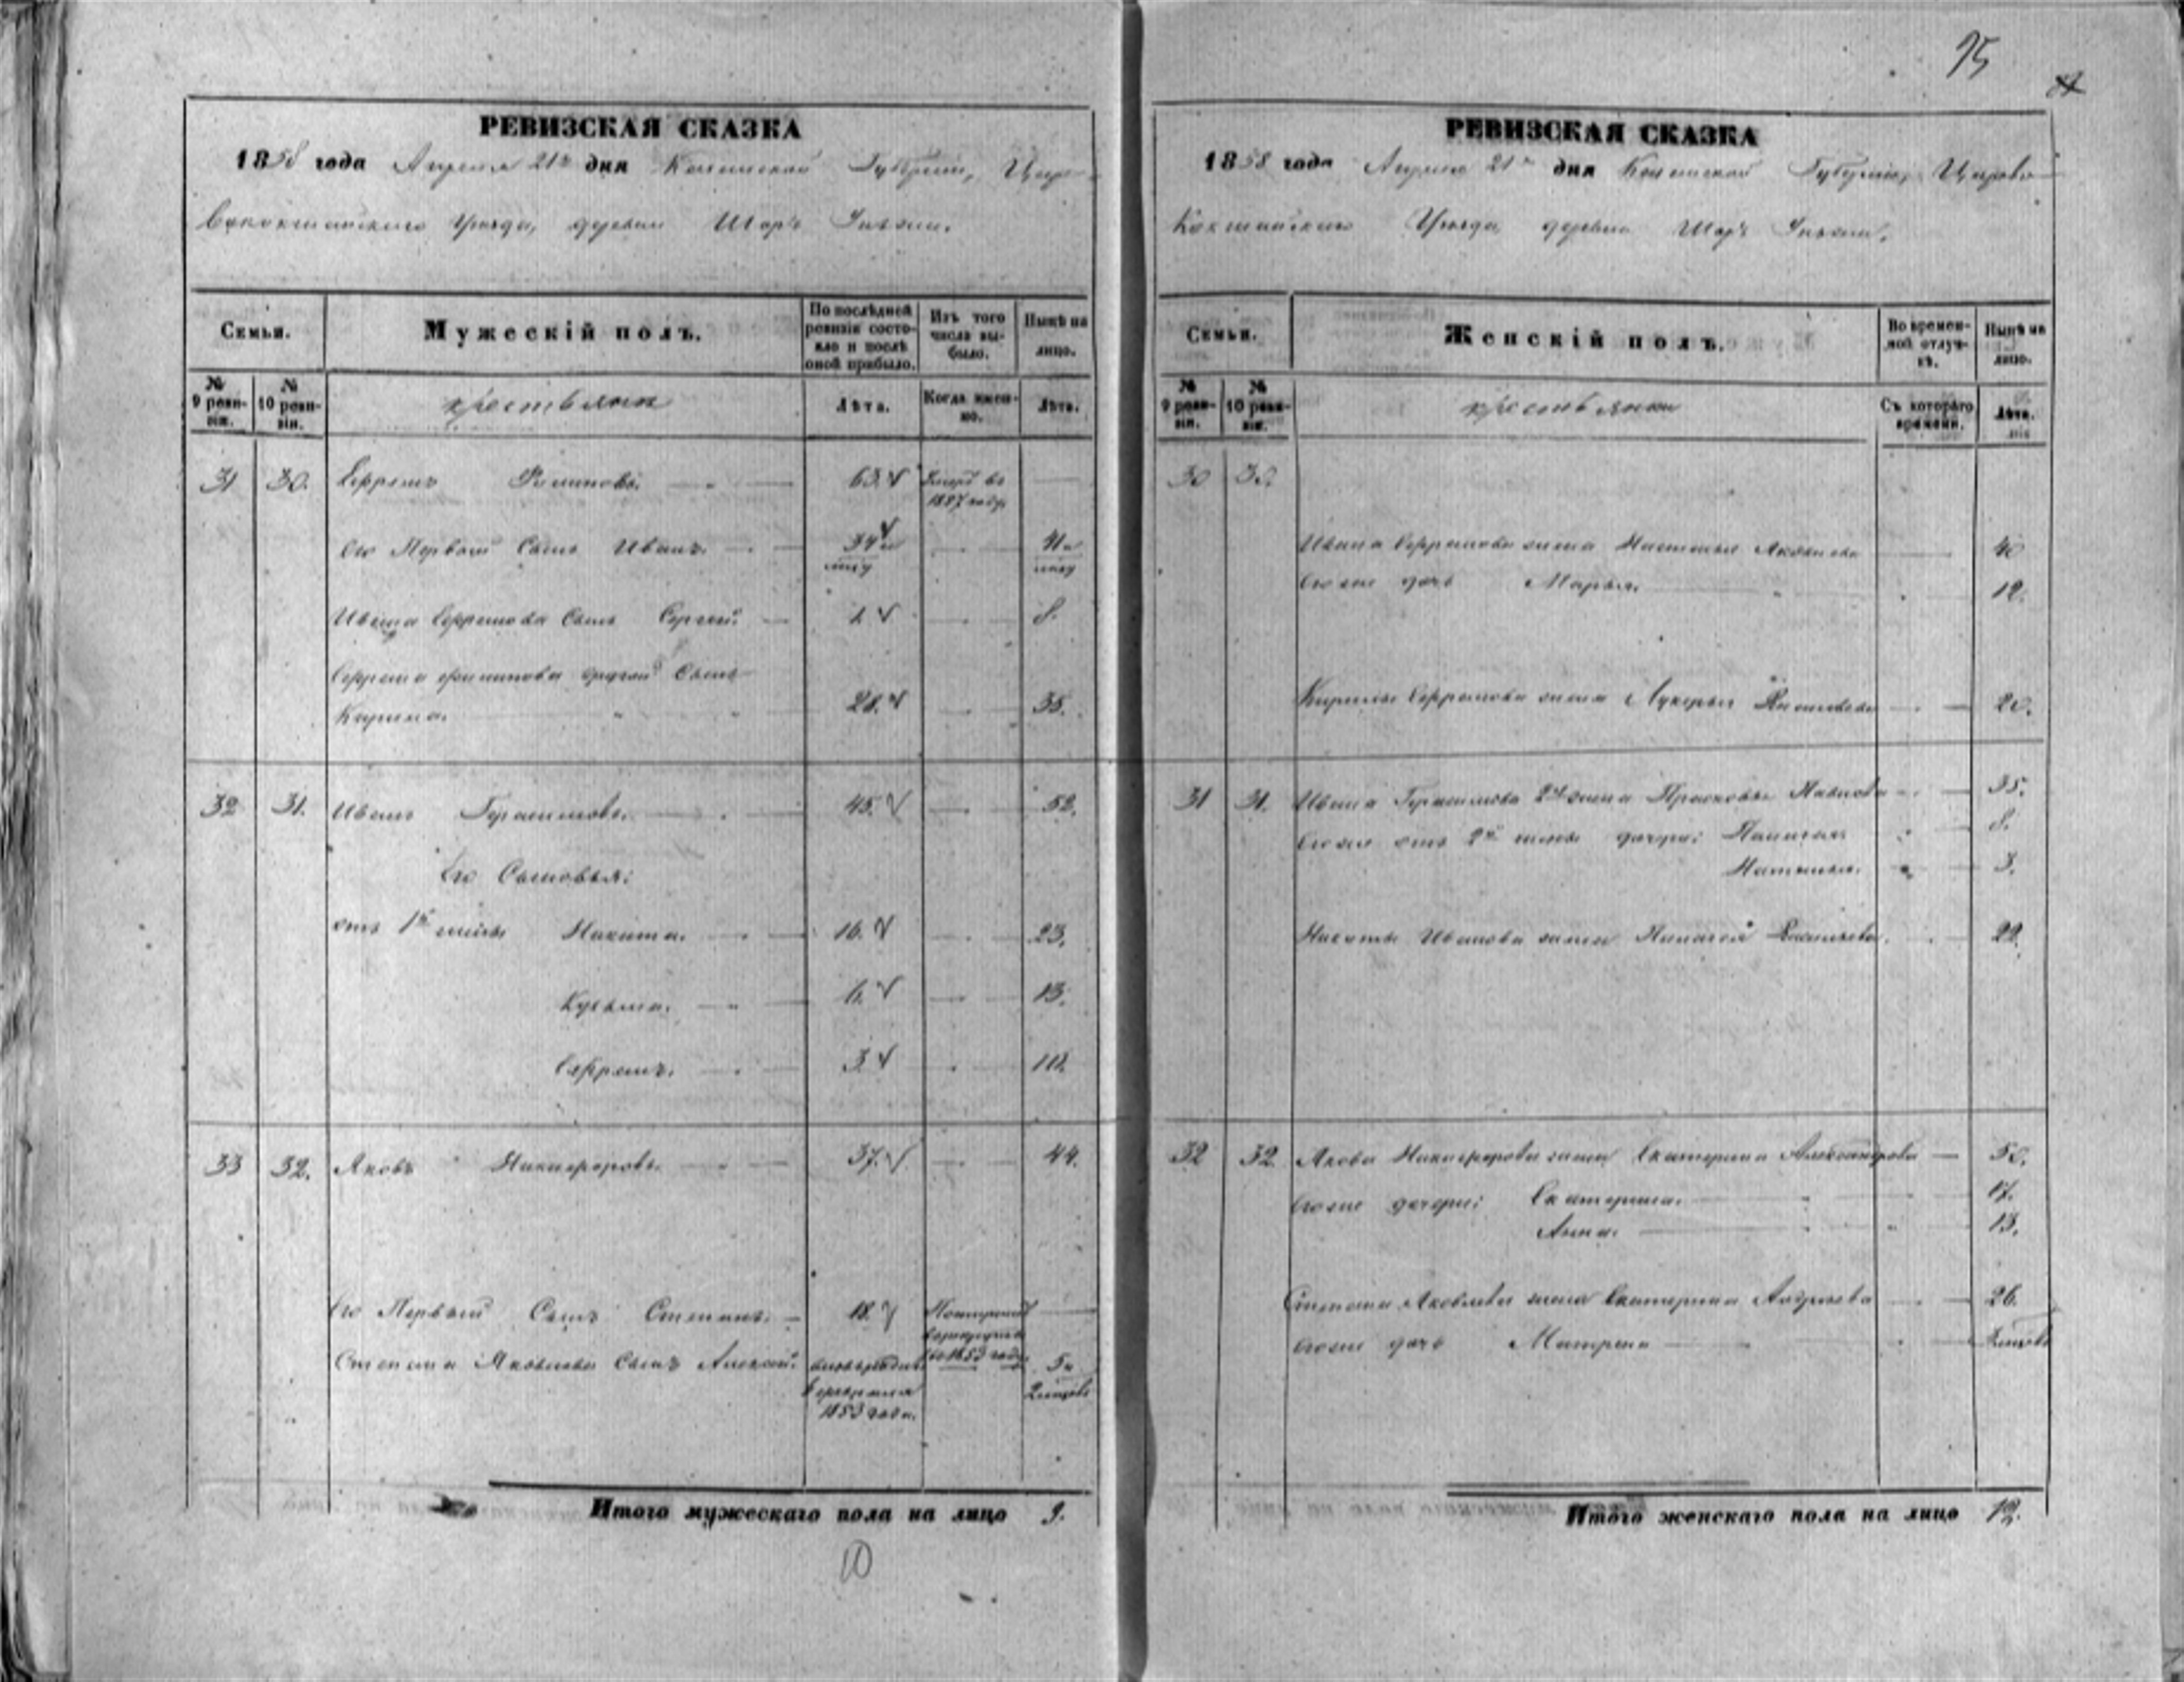 РЕВИЗСКАЯ СКАЗКА
1858 года Апреля 21го дня Казанской Губернии, Царе-
вококшайскаго Уезда, деревни Шоръ
Семьи.
Мужескій полъ.
По послѣдней ревизіи состо-яло и послѣ оной прибыло.
Изъ того числа вы-было.
Нынѣ на лицо.
№ 9 реви-зіи.
№ 10 реви-зіи.
крестьяне
Лѣта.
Когда имен-но.
Лѣта.
31 30. Ефремъ Филиповъ. 63. Умеръ въ
Его Первый Сынъ Иванъ. 34
Ивана Ефремова Сынъ Сергей. 1 8.
Ефрема Филипова другой Сынъ
Кирила. 28. 35.
32 31. Иванъ Герасимовъ. 45. 52.
Его Сыновья:
отъ 1й жены Никита. 16. 23.
Кузьма. 6. 13.
Ефремъ. 3 10.
33 32. Яковъ Никифоровъ. 37. 44.
Его Первый Сынъ Степанъ. 18.
1853 года
Степана Яковлева Сынъ Алексей. 5
1853 года.
Итого мужескаго пола на лицо 9.
10
75
РЕВИЗСКАЯ СКАЗКА
1858 года Апреля 21го дня Казанской Губернии, Царево-
кокшайскаго Уезда, деревни Шоръ
Семьи.
Женскій полъ.
Во времен-ной отлуч-кѣ.
Нынѣ на лицо.
№ 9 реви-зіи.
№ 10 реви-зіи.
крестьянки
Съ котораго времени.
Лѣта.
30 30.
Ивана Ефремова жена Настасья Яковлева 40
Его же дочь Марья. 12.
Кирилы Ефремова жена Лукерья 20.
31 31. Ивана Герасимова 2я жена Прасковья Павлова 35.
Его же отъ 2й жены дочери: Палагея 8.
Наталья. 3.
Никиты Иванова жена Палагея 22.
32 32 Якова Никифорова жена Екатерина Александрова 50.
Его же дочери: Екатерина. 17.
Анна. 13.
Степана Яковлева жена Екатерина Андреева 26.
Его же дочь Матрена
Итого женскаго пола на лицо 12.